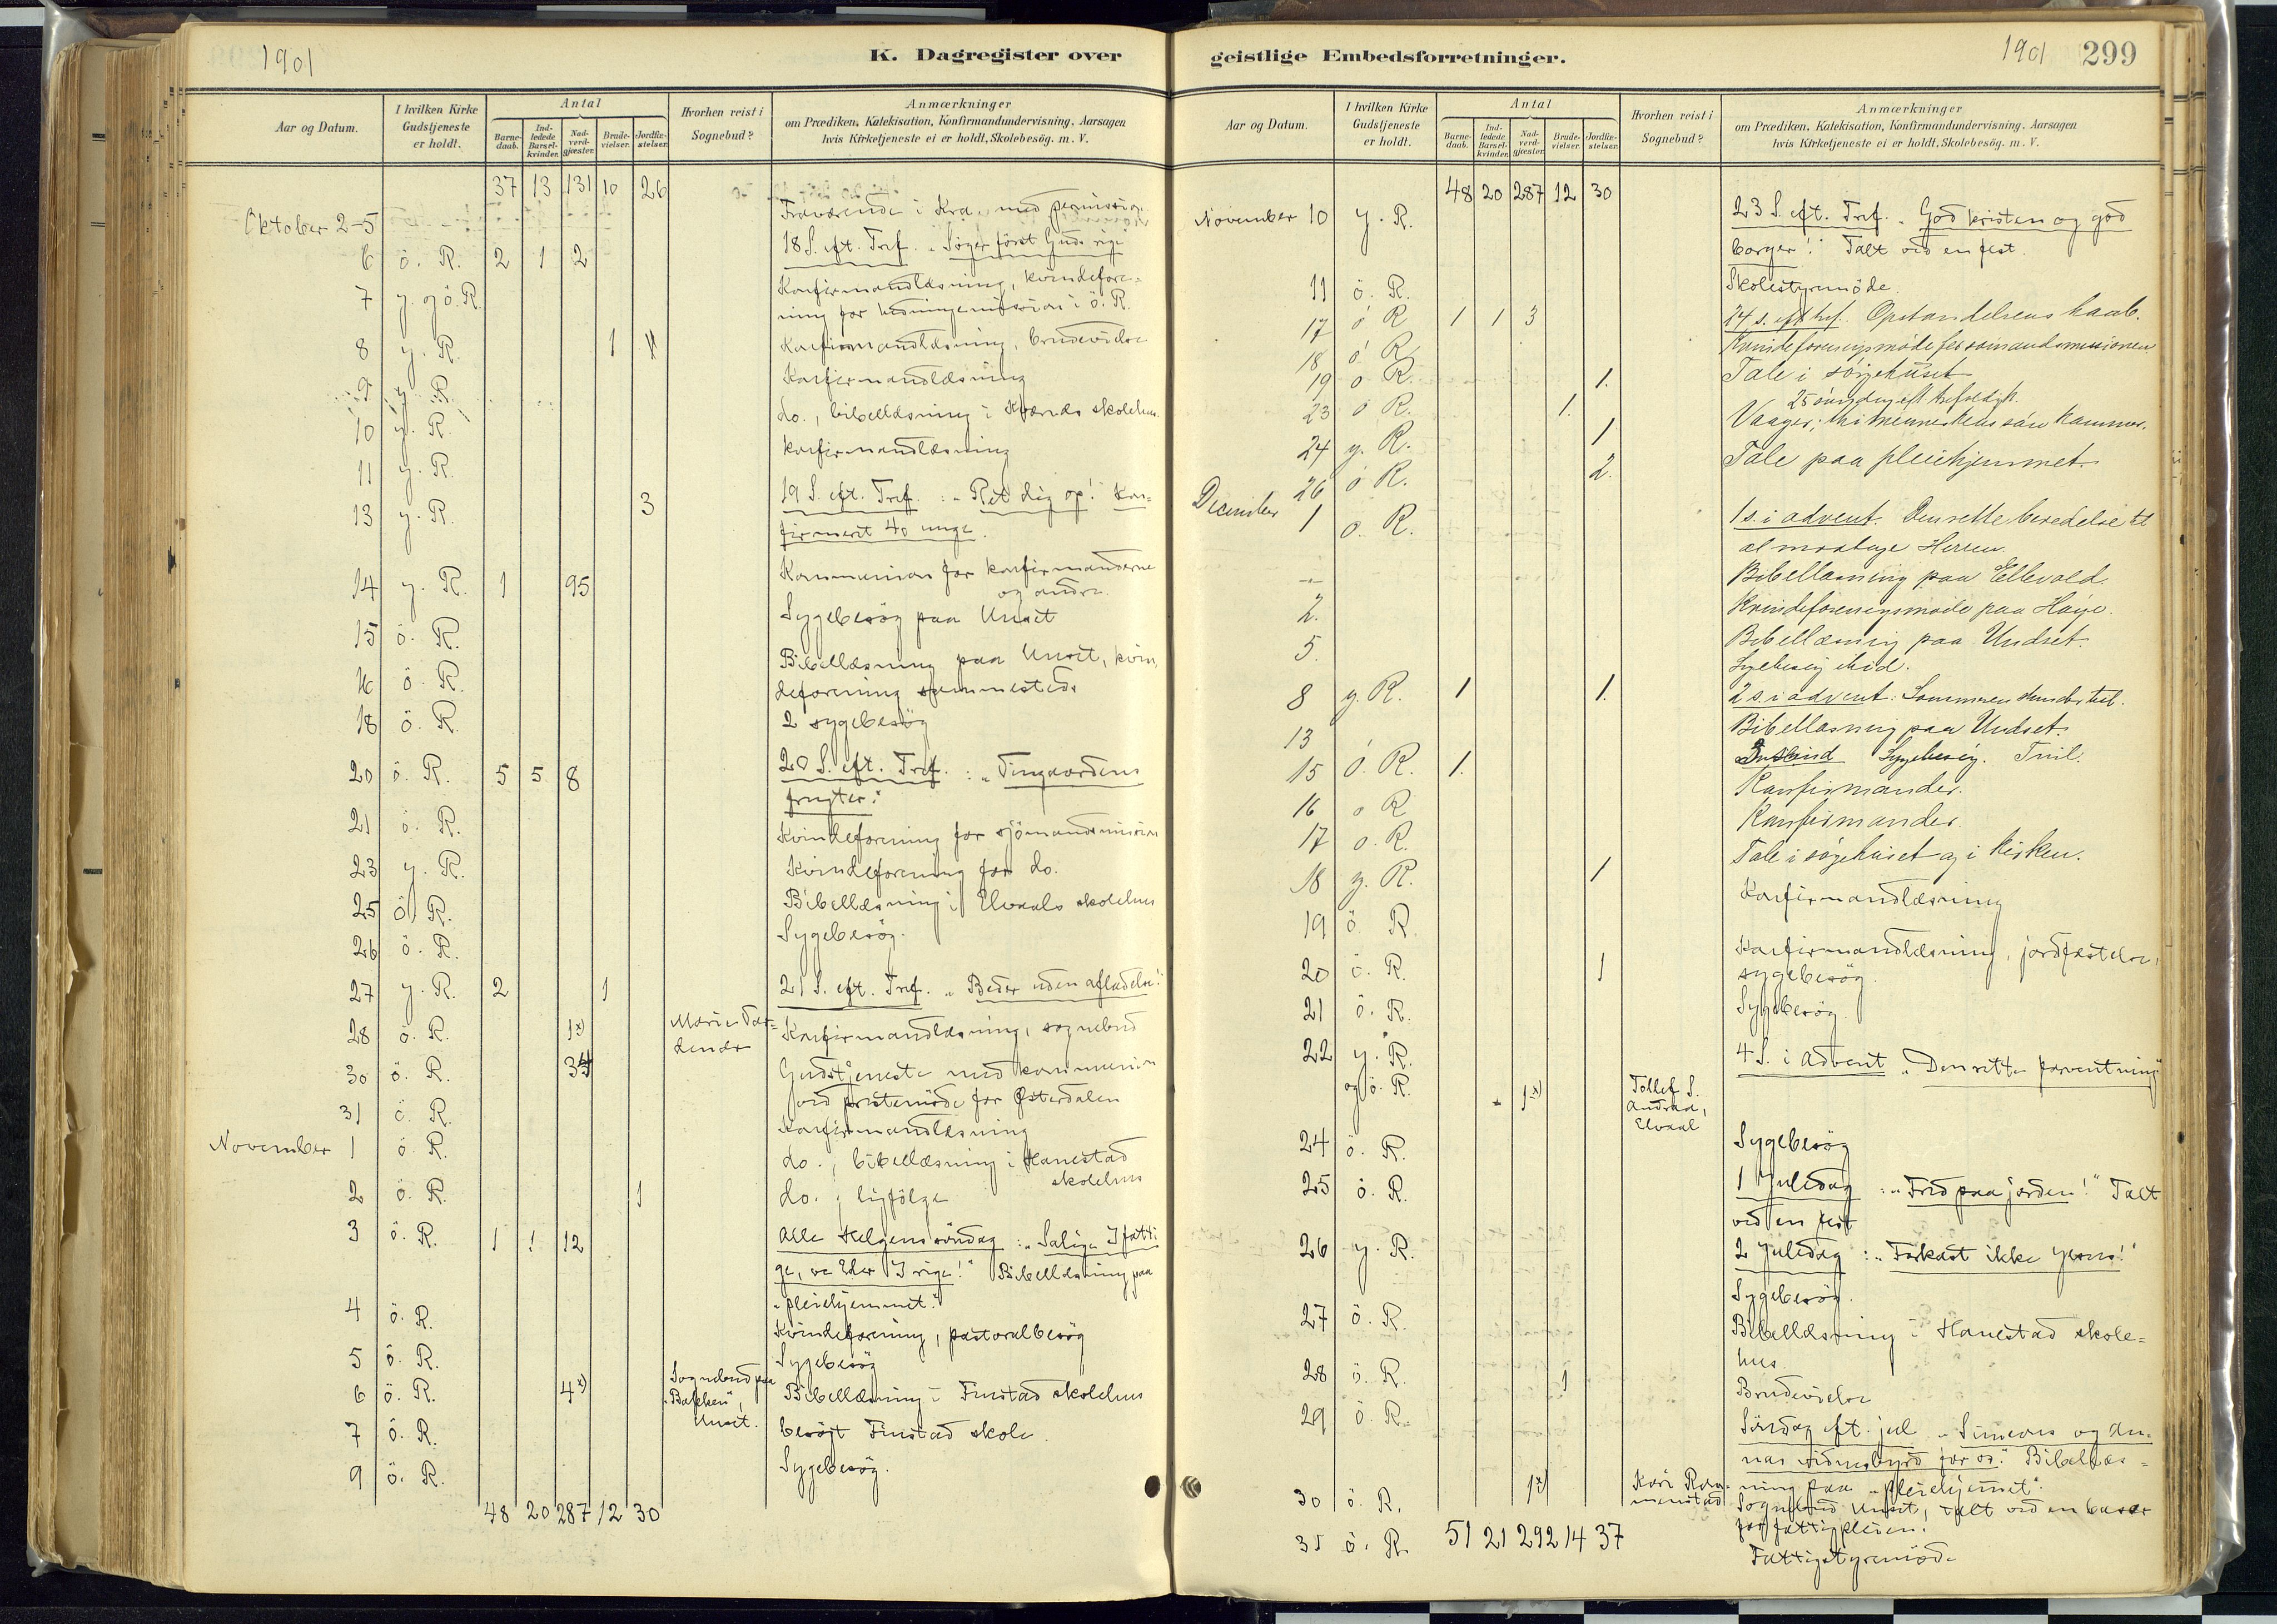 1901
K. Dagregister over
Aar og Datum.
I hvilken Kirke Gudstjeneste er holdt.
Antal
Barne-daab.
Ind-ledede Barsel-kvinder.
Nad-verd-gjæster.
Brude-vielser.
Jordfæ-stelser.
Hvorhen reist i Sognebud?
Anmærkninger
om Prædiken, Katekisation, Konfirmandundervisning, Aarsagen
hvis Kirketjeneste ei er holdt, Skolebesög. m. V.
37 13 131 10 26
Oktober 2-5 Fraværende i Kra. med permission
6 ö. R. 2 1 2 18 S. eft. Tref. „Söger först Guds rige"
7 y. og ö. R. Konfirmandlæsning, kvindefore-
ning for hedningemission i ö. R.
8 y. R. 1 Konfirmandlæsning, brudevielse
9 y. R. Konfirmandlæsning
10 y. R. do., bibellæsning i Kværnes skolehus
11 y. R. Konfirmandlæsning
13 y. R. 3 19 S. eft. Tref.: „Ret dig op!" Kon-
firmerit 40 unge.
14 y. R. 1 95 Kommunion for konfirmanderne
og andre.
15 ö. R. Sygebesög paa Unset
16 ö. R. Bibellæsning paa Unset, kvin
deforening sammesteds
18 ö. R. 2 sygebesög
20 ö. R. 5 5 8 20 S. eft. Tref.: „Tingaardens
frugter."
21 ö. R. Kvindeforening for sjömandsmission
23 y. R. Kvindeforening for do.
25 ö. R. Bibellæsning i Elvaals skolehus
26 ö. R. Sygebesög.
27 y. R. 2 1 21 S. eft. Tref. „Beder uden afladelse!"
28 ö. R. 1x) Marie Konfirmandlæsning, sognebud
30 ö. R. Gudstjeneste med kommunion
31 ö. R. ved prestemöde for Østerdalen
Konfirmandlæsning
November 1 ö. R. do., bibellæsning i Hanestad
skolehus
2 ö. R. 1 do., ligfölge
3 ö. R. 1 1 12 Alle Helgens söndag: „Salige I fatti
ge, ve Eder I rige!" Bibellæsning paa
„pleiehjemmet."
4 ö. R. Kvindeforening, pastoralbesög
5 ö. R. Sygebesög
6 ö. R. 4x) Sognebud paa „Bakken", Unset. Bibellæsning i Finstad skolehus
7 ö. R. besögt Finstad skole.
9 ö. R. Sygebesög.
48 20 287 12 30
geistlige Embedsforretninger.
1901 299
Aar og Datum.
I hvilken Kirke Gudstjeneste er holdt.
Antal
Barne-daab.
Ind-ledede Barsel-kvinder.
Nad-verd-gjæster.
Brude-vielser.
Jordfæ-stelser.
Hvorhen reist i Sognebud?
Anmærkninger
om Prædiken, Katekisation, Konfirmandundervisning, Aarsagen
hvis Kirketjeneste ei er holdt, Skolebesög. m. V.
48 20 287 12 30
November 10 y. R. 23 S. eft. Tref. „God kristen og god
borger!" Talt ved en fest.
11 ö. R. Skolestyremöde.
17 ö R 1 1 3 24 s. eft. tref. Opstandelsens haab.
18 ö R Kvindeforeningsmöde for sömandsmissionen
19 ö R. 1. Tale i sörgehuset
23 ö R. 1. 25 söndag eft trefoldigh.
24 y. R. 1 Vaager, thi menneskens sön kommer.
26 ö R. 2. Tale paa pleiehjemmet.
December 1 ö. R. 1 s. i advent. Den rette beredelse til
at modtage Herren.
Bibellæsning paa Ellevold.
2. Kvindeforeningsmöde paa Höye.
5. Bibellæsning paa Undset.
Sygebesög ibid.
8 y. R. 1 1. 2 s. i advent:
13 Bibellæsning paa Undset.
15 Ö. R. 1. Sygebesög.
16 ö R Konfirmander.
17 ö. R. Konfirmander.
18 y. R. 1 Tale i sörgehuset og i kirken.
19 ö. R. Konfirmandlæsning
20 ö. R. 1 Konfirmandlæsning, jordfæstelse,
sygebesög.
21 ö. R. Sygebesög.
22 y. R. 4 S. i Advent „Den rette forventning"
og ö. R. 1x) Tollef S. Andraa, Elvaal
24 ö. R. Sygebesög
25 ö. R. 1 Juledag: „Fred paa jorden!" Talt
ved en fest
26 y. R. 2 Juledag: „Forkast ikke Jesus!"
Sygebesög.
27 ö. R. Bibellæsning i Hanestad skole-
hus.
28 ö. R. 1 Brudevielse
29 ö. R. Söndag eft. jul „Simeons og An-
nas vidnesbyrd for os." Bibellæs-
ning paa „pleiehjemmet".
30 ö. R. 1x) Sognebud Unset, talt ved en basar
for fattigpleien.
31 ö. R. Fattigstyremöde
51 21 292 14 37